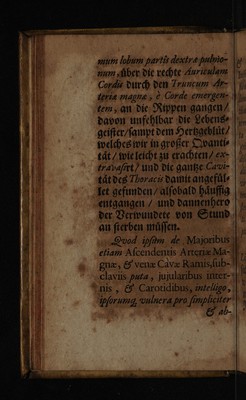 mum lobum partis dextræ pulmo-
num, über die rechte Auriculam
Cordis durch den Truncum Ar-
teriæ magnæ, è Corde emergen-
tem, an die Rippen gangen /
davon unfehlbar die Lebens-
geister / sampt dem Hertzgeblüt /
welches wir in grosser Quanti-
tät / wie leicht zu erachten / ex-
travasirt / und die gantze Cavi-
tät des Thoracis damit angefül-
let gefunden / alsobald häuffig
entgangen / und dannenhero
der Verwundete von Stund
an sterben müssen.
Quod ipsum de Majoribus
etiam Ascendentis Arteriæ Ma-
gnæ, & venæ Cavæ Ramis, sub-
claviis puta, jujularibus inter-
nis, & Carotidibus, intelligo,
ipsorumq; vulnera pro simpliciter
& ab-